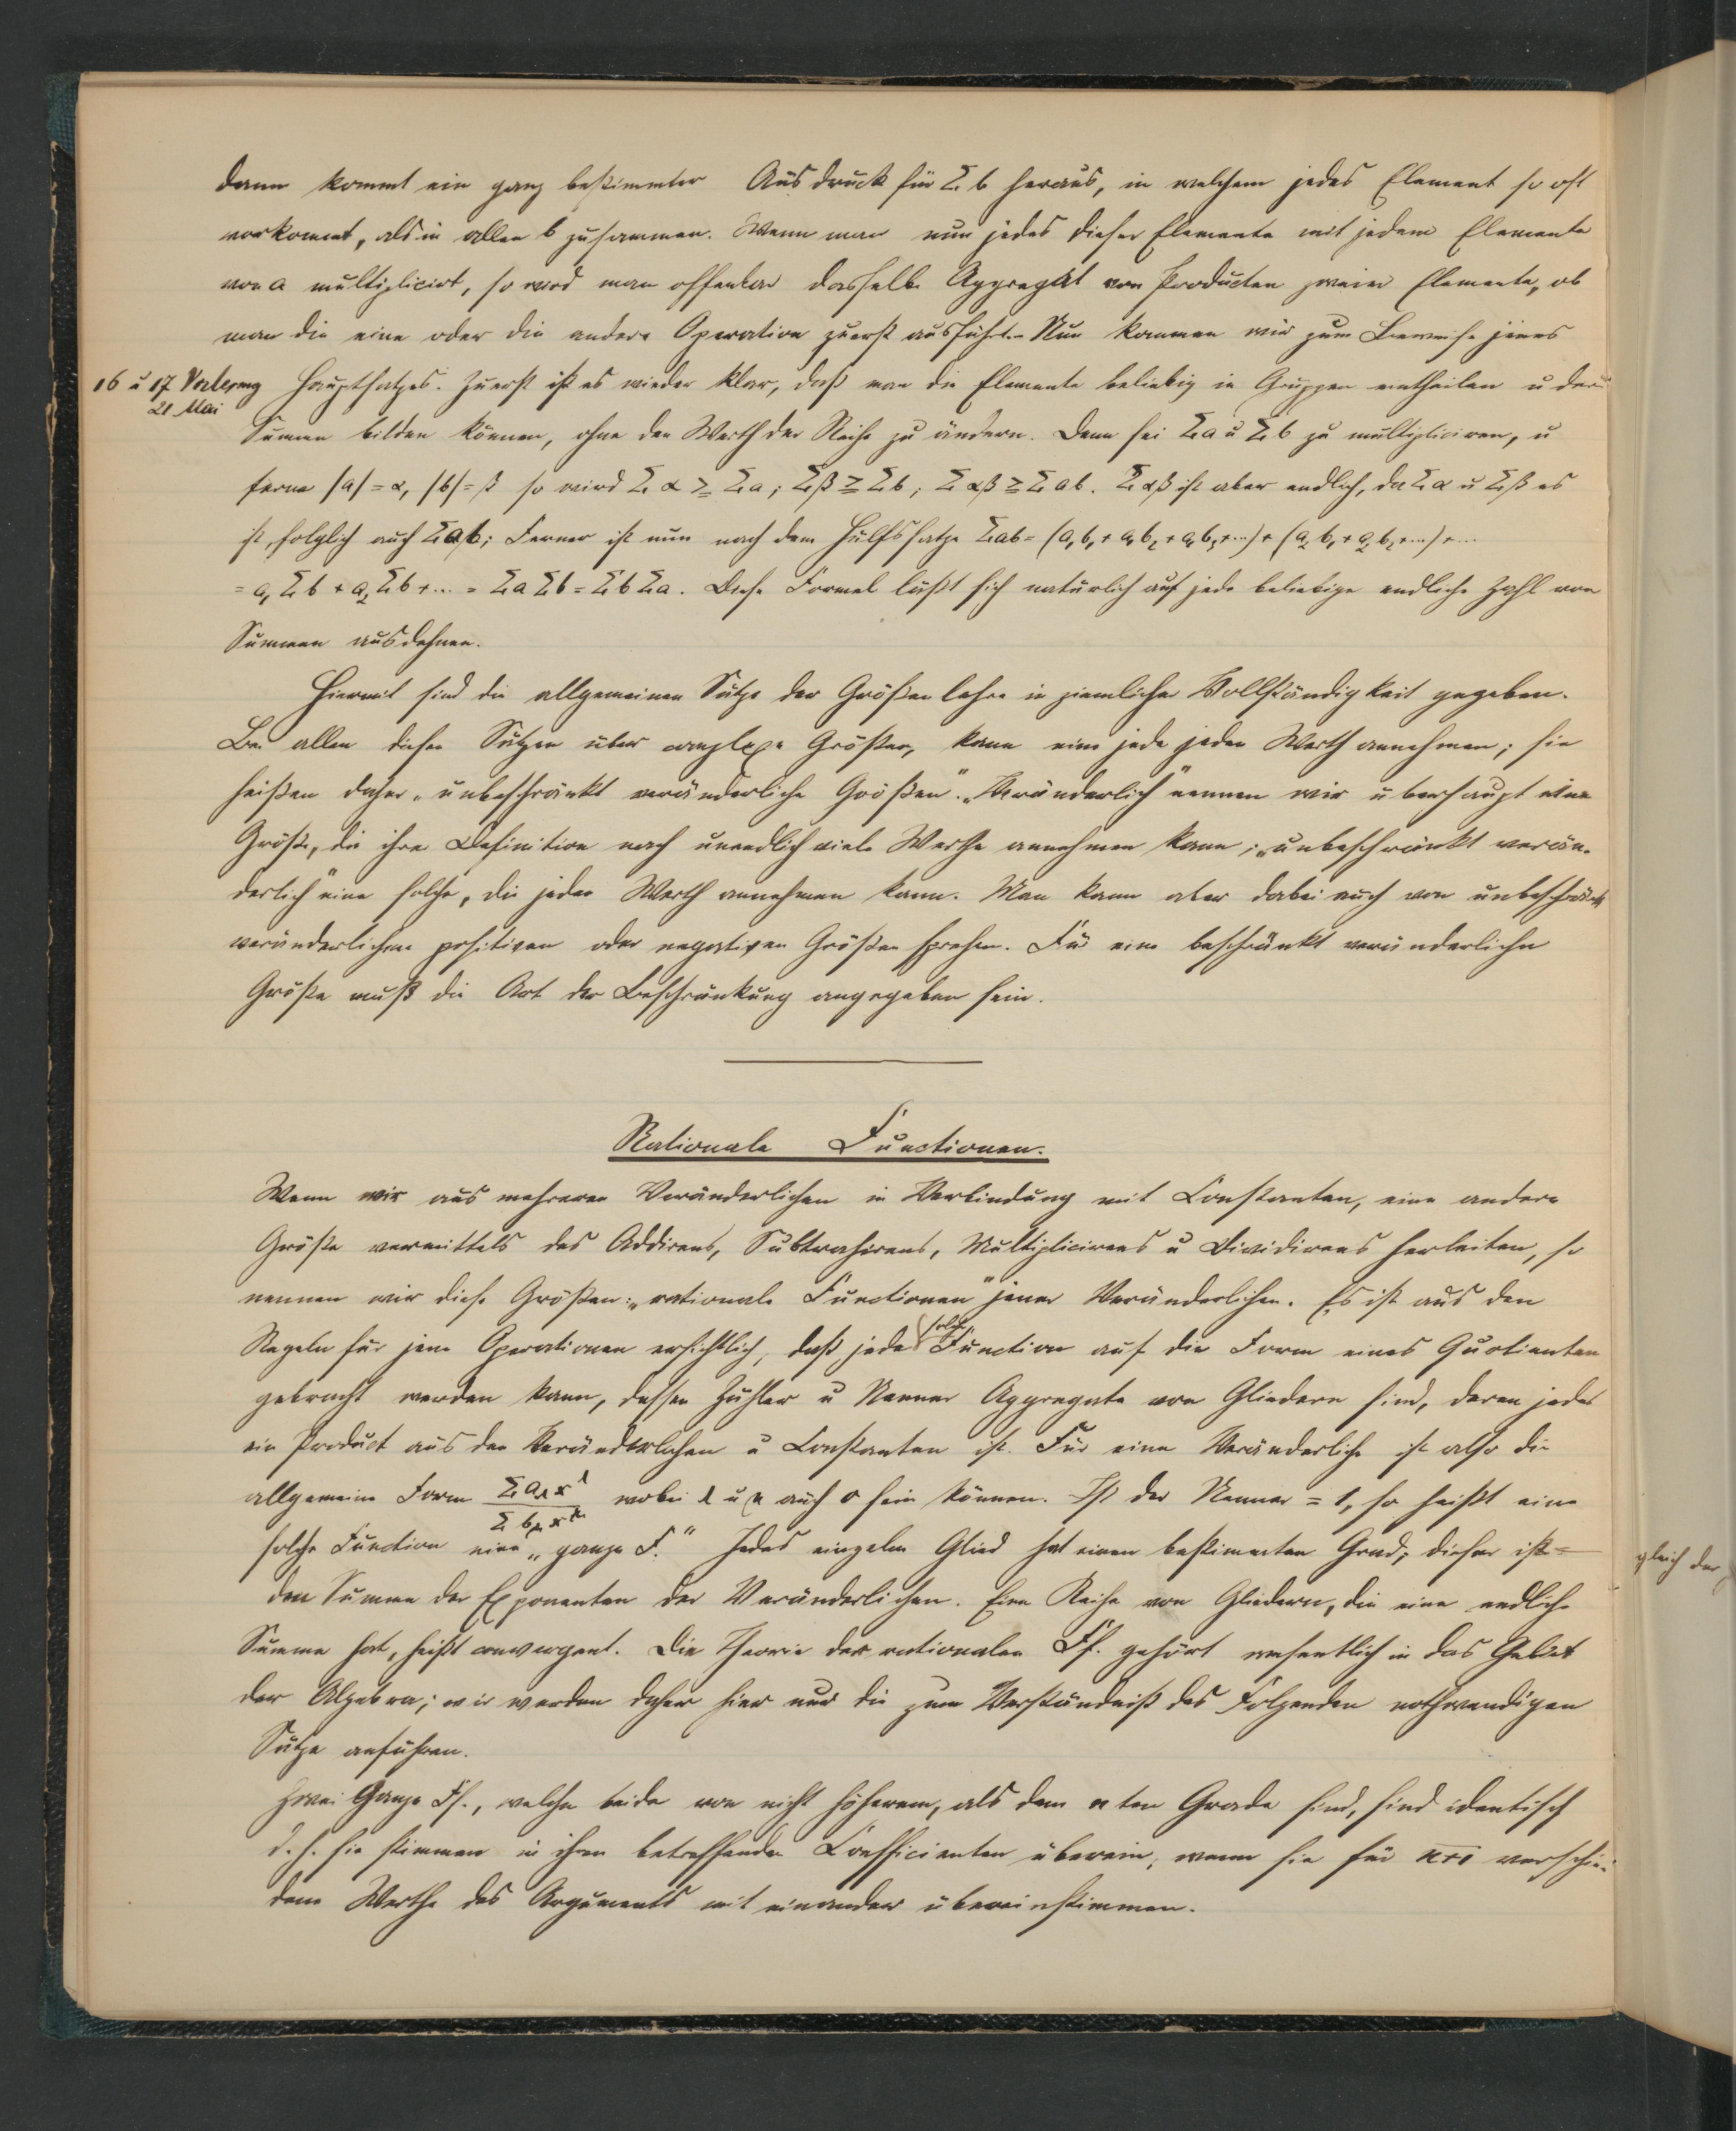 dann kommt ein ganz bestimmter Ausdruck für Σ b heraus, in welchem jedes Element so oft
vorkommt, als in allen b zusammen. Wenn man nun jedes dieser Elemente mit jedem Elemente
von a multiplicirt, so wird man offenbar dasselbe Aggregat von Producten zweier Elemente, ob
man die eine oder die andere Operation zuerst ausführt. Nun kommen wir zum Beweise jenes
16 u 17 Vorlesung
21 Mai
Hauptsatzes. Zuerst ist es wieder klar, daß man die Elemente beliebig in Gruppen eintheilen u deren
Summen bilden können, ohne den Werth der Reihe zu ändern. Denn sei Σa u Σb zu multipliciren, u
ferner |a| = α, |b| = β so wird Σ α ≥ Σa; Σβ ≥ Σb; Σ αβ ≥ Σ ab. Σ αβ ist aber endlich, da Σα u Σβ es
ist, folglich auch Σab; Ferner ist nun nach dem Hülfssatze Σab = (a₁b₁ + a₁b₂ + a₁b₃+...) + (a₂b₁ + a₂b₂+...)+...
= a₁Σb + a₂Σb+... = ΣaΣb = ΣbΣa. Diese Formel läßt sich natürlich auf jede beliebige endliche Zahl von
Summen ausdehnen.
Hiermit sind die allgemeinen Sätze der Größenlehre in ziemlicher Vollständigkeit gegeben.
Bei allen diesen Sätzen über complexe Größen, kann eine jede jeden Werth annehmen; sie
heißen daher „unbeschränkt veränderliche Größen“. „Veränderlich“ nennen wir überhaupt eine
Größe, die ihre Definition nach unendlich viele Werthe annehmen kann; „unbeschränkt verän-
derlich“ eine solche, die jeden Werth annehmen kann. Man kann aber dabei auch von unbeschränkt
veränderlichen positiven oder negativen Größen sprechen. Für eine beschränkt veränderliche
Größe muß die Art der Beschränkung angegeben sein.
Rationale Functionen.
Wenn wir aus mehreren Veränderlichen in Verbindung mit Constanten, eine andere
Größe vermittels des Addirens, Subtrahirens, Multiplicirens u Dividirens herleiten, so
nennen wir diese Größen: „rationale Functionen“ jener Veränderlichen. Es ist aus den
Regeln für jene Operationen ersichtlich, daß jede solche Function auf die Form eines Quotienten
gebracht werden kann, dessen Zähler u Nenner Aggregate von Gliedern sind, deren jedes
ein Product aus den Veränderlichen u Constanten ist. Für eine Veränderliche ist also die
allgemeine Form Σ a_λ x^λ / Σ b_μ x^μ wobei λ u μ auch 0 sein können. Ist der Nenner = 1, so heißt eine
solche Function eine „ganze F.“ Jedes einzelne Glied hat einen bestimmten Grad; dieser ist = gleich der
den Summe der Exponenten der Veränderlichen. Eine Reihe von Gliedern, die eine endliche
Summe hat, heißt convergent. Die Theorie der rationalen Ff. gehört wesentlich in das Gebiet
der Algebra; wir werden daher hier nur die zum Verständniß des Folgenden nothwendigen
Sätze anführen.
Zwei Ganze Ff., welche beide von nicht höherem, als dem nten Grade sind, sind identisch
d. h. sie stimmen in ihren betreffenden Coefficienten überein, wenn sie für n+1 verschie-
dene Werthe des Arguments mit einander übereinstimmen.